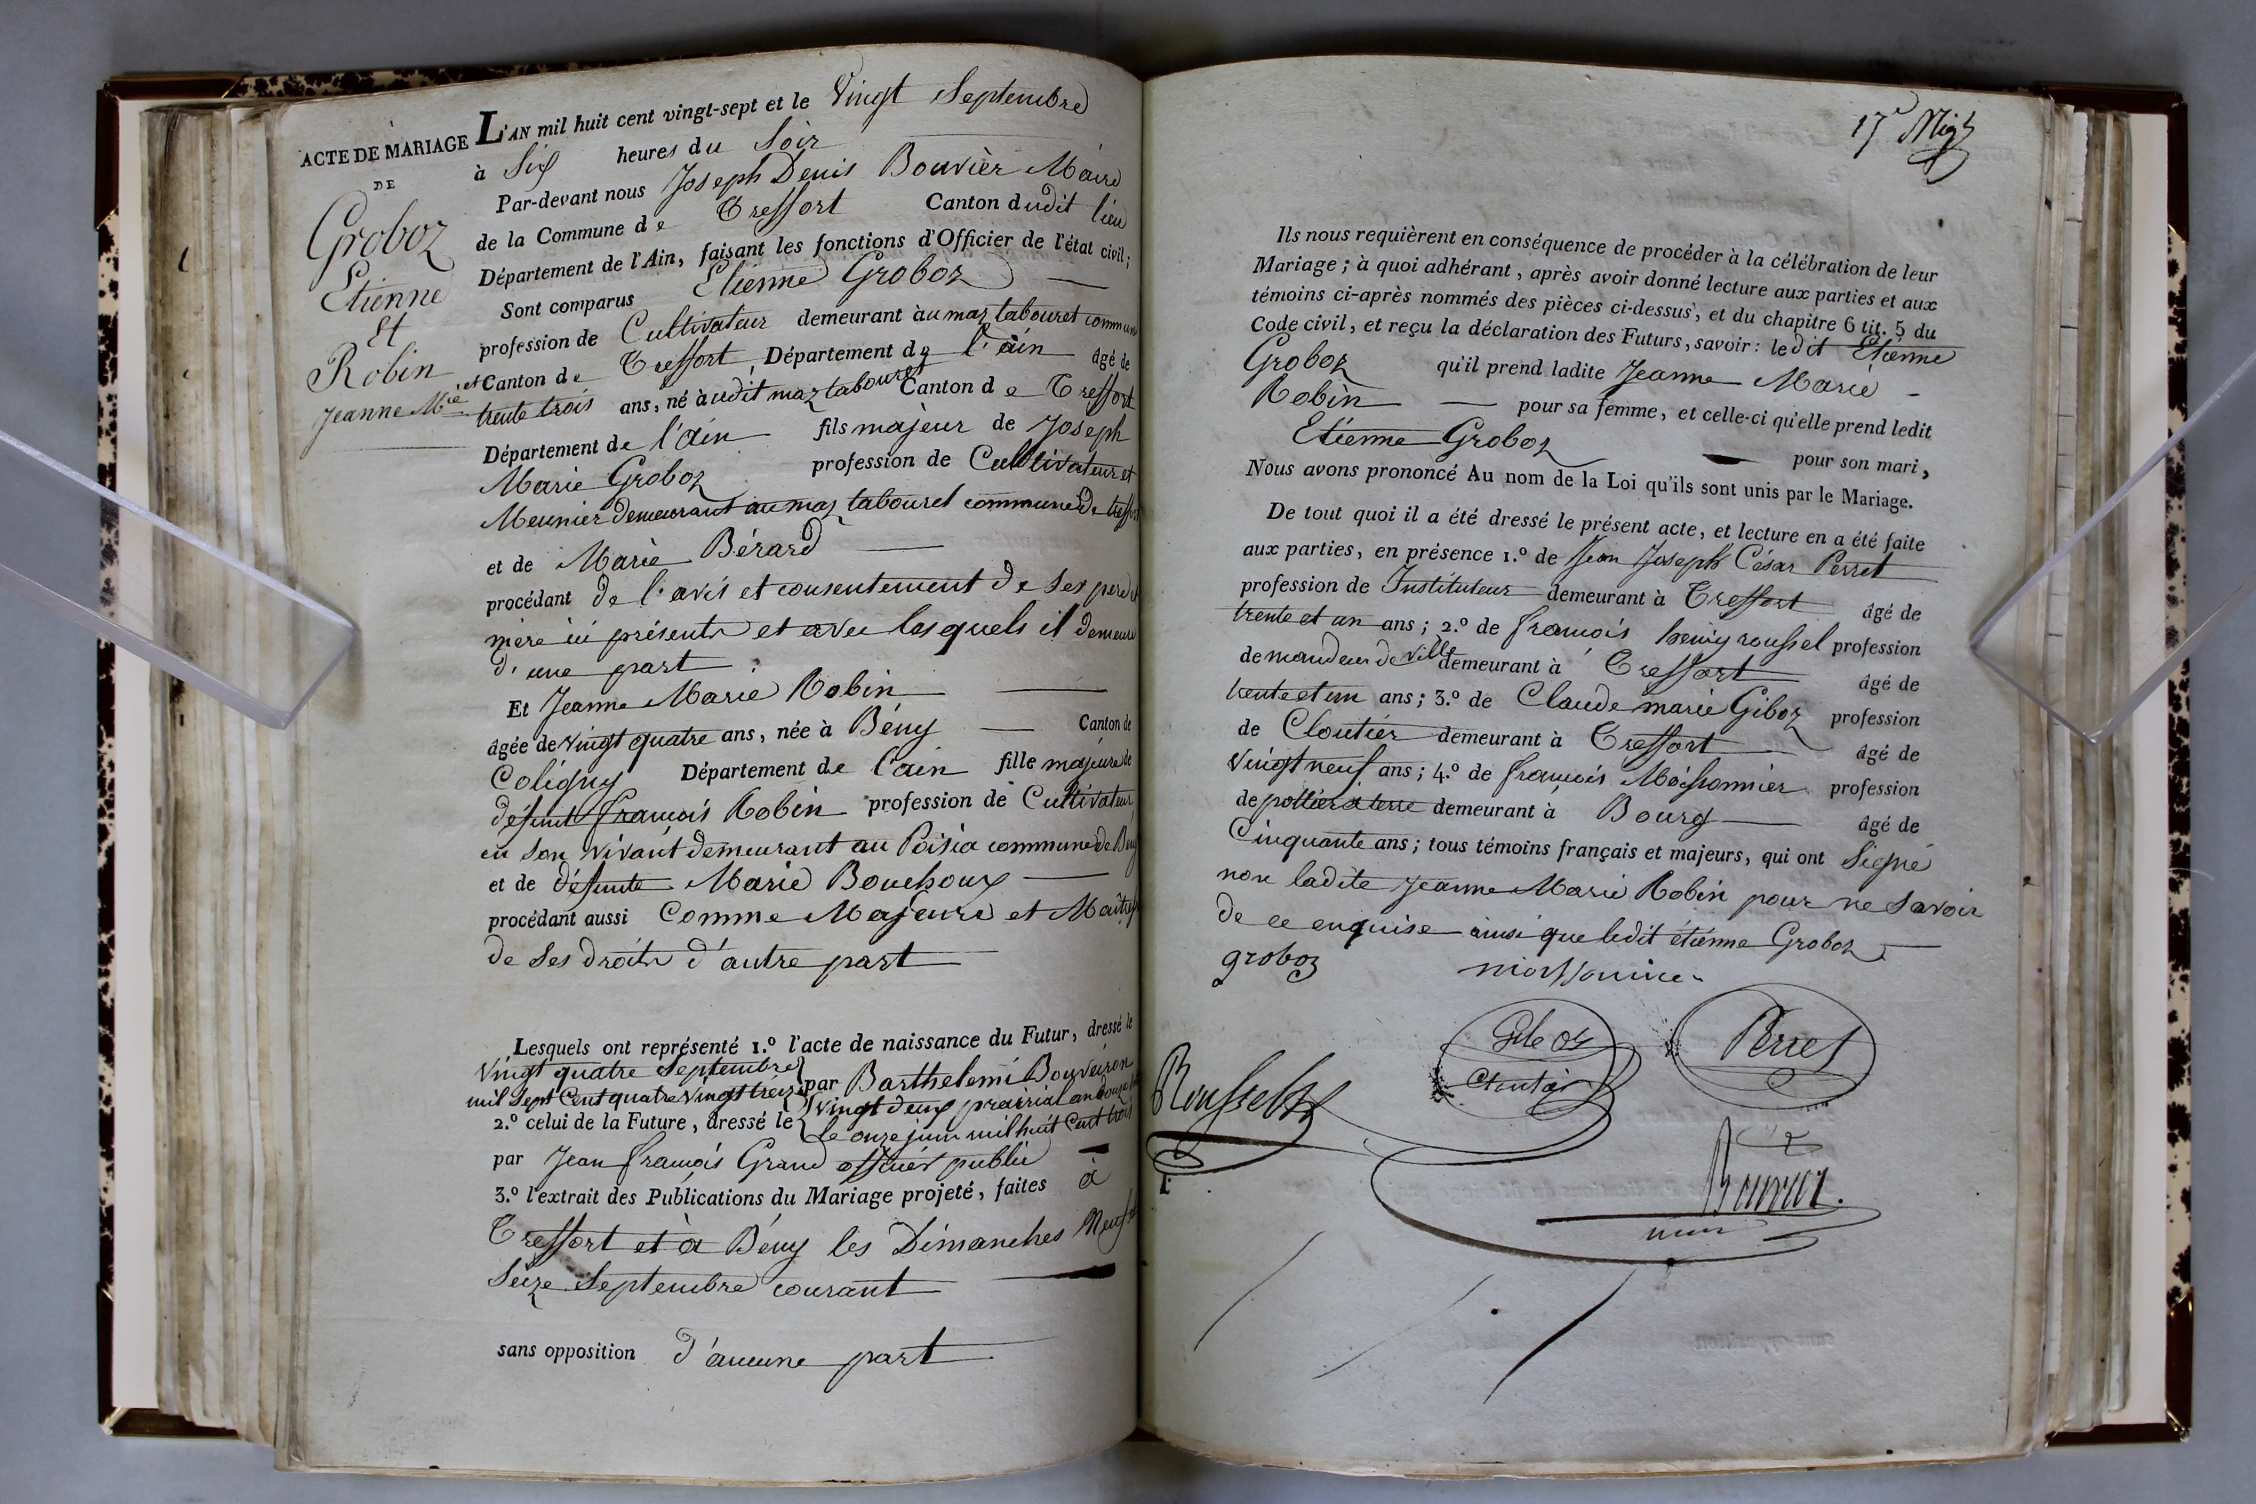 ACTE DE MARIAGE
DE
Groboz
Etienne
Et
Robin
Jeanne Mie
L'AN mil huit cent vingt-sept et le Vingt Septembre
à Six heures du Soir
Par-devant nous Joseph Denis Bouvier Maire
de la Commune de Treffort Canton dudit lieu
Département de l'Ain, faisant les fonctions d'Officier de l'état civil;
Sont comparus Etienne Groboz
profession de Cultivateur demeurant à au maz tabouret commune
et Canton de Treffort, Département de l'ain âgé de
trente trois ans, né à udit maz tabouret Canton de Treffort
Département de l'ain fils majeur de Joseph
Marie Groboz profession de Cultivateur et
Meunier demeurant au maz tabouret commune de treffort
et de Marie Bérard
procédant de l'avis et consentement de ses pere et
mère ici présents et avec lesquels il demeure
d'une part
Et Jeanne Marie Robin
âgée de vingt quatre ans, née à Bény Canton de
Coligny Département de l'ain fille majeure de
défunt françois Robin profession de Cultivateur
en son vivant demeurant au Poisia commune de Bény
et de défunte Marie Bouchoux
procédant aussi Comme Majeure et Maîtresse
de ses droits d'autre part
Lesquels ont représenté 1.º l'acte de naissance du Futur, dressé le
vingt quatre Septembre
mil sept Cent quatre vingt treize par Barthelemi Bouveiron
2.º celui de la Future, dressé le vingt deux prairial an onze
le onze juin mil huit Cent trois
par Jean françois Grand officier public
3.º l'extrait des Publications du Mariage projeté, faites à
Treffort et à Bény les Dimanches Neuf et
Seize Septembre courant
sans opposition d'aucune part
17e
Ils nous requièrent en conséquence de procéder à la célébration de leur
Mariage; à quoi adhérant, après avoir donné lecture aux parties et aux
témoins ci-après nommés des pièces ci-dessus, et du chapitre 6 tit. 5 du
Code civil, et reçu la déclaration des Futurs, savoir: ledit Etienne
Groboz qu'il prend ladite Jeanne Marie
Robin pour sa femme, et celle-ci qu'elle prend ledit
Etienne Groboz pour son mari,
Nous avons prononcé Au nom de la Loi qu'ils sont unis par le Mariage.
De tout quoi il a été dressé le présent acte, et lecture en a été faite
aux parties, en présence 1.º de Jean Joseph César Perret
profession de Instituteur demeurant à Treffort âgé de
trente et un ans; 2.º de françois henry roussel profession
de mandeur de ville demeurant à Treffort âgé de
trente et un ans; 3.º de Claude marie Giboz profession
de Cloutier demeurant à Treffort âgé de
vingt neuf ans; 4.º de françois Moissonnier profession
de pottier à terre demeurant à Bourg âgé de
Cinquante ans; tous témoins français et majeurs, qui ont Signé
non ladite Jeanne Marie Robin pour ne savoir
de ce enquise ainsi que ledit étienne Groboz
groboz moissonnier
Giboz
Cloutier
Perret
Roussel
Bouvier